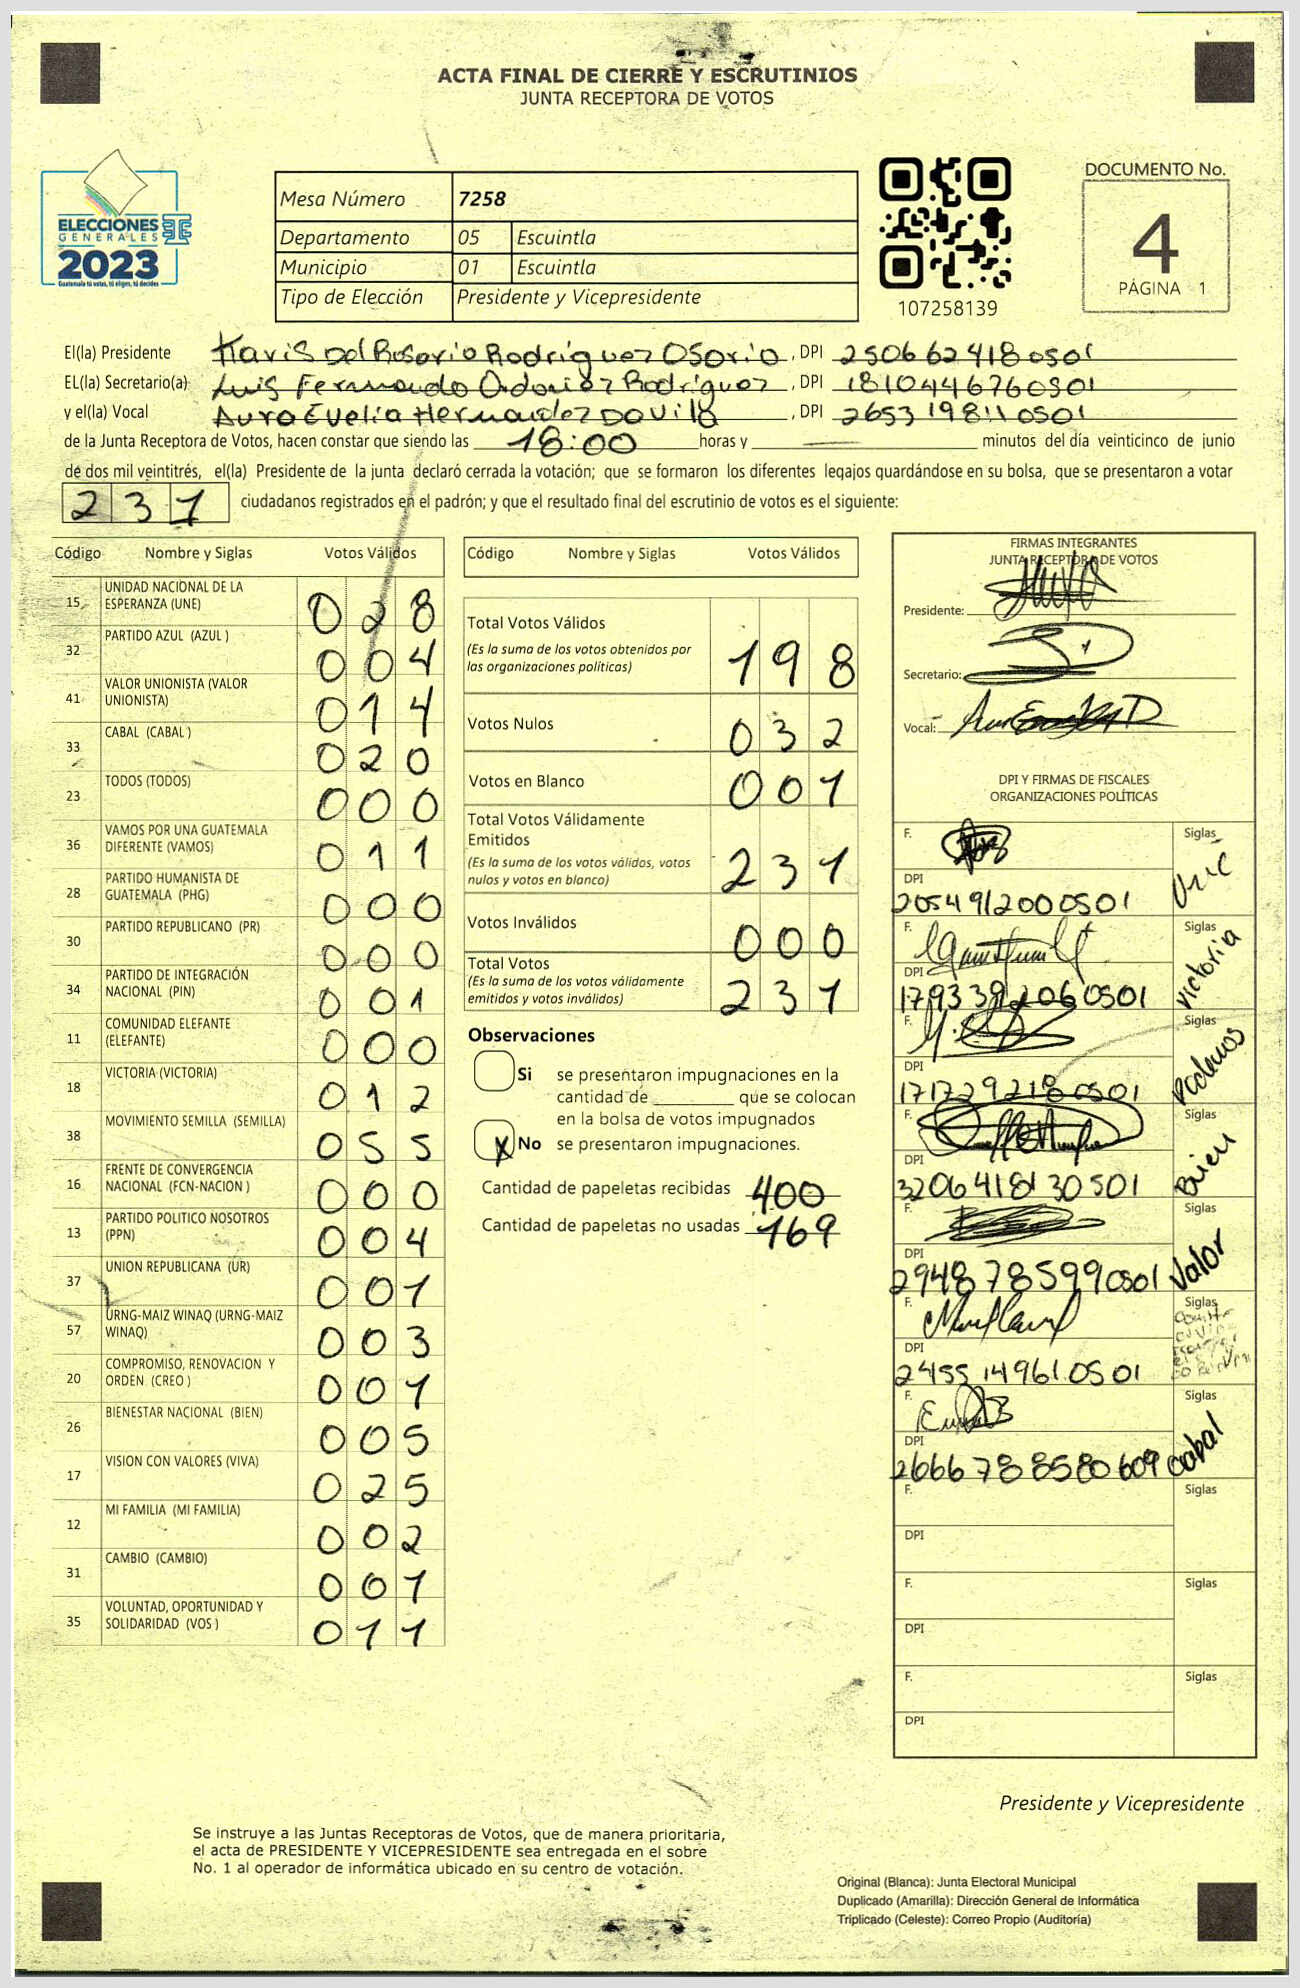 ACTA FINAL DE CIERRE Y ESCRUTINIOS
JUNTA RECEPTORA DE VOTOS
ELECCIONES
GENERALES
2023
Guatemala tú votas, tú eliges, tú decides
Mesa Número 7258
Departamento 05 Escuintla
Municipio 01 Escuintla
Tipo de Elección Presidente y Vicepresidente
107258139
DOCUMENTO No.
4
PÁGINA 1
El(la) Presidente Karis Del Rosario Rodriguez Osorio, DPI 2506624180501
EL(la) Secretario(a) Luis Fernando Ordoñez Rodriguez, DPI 1810446760501
y el(la) Vocal Aura Evelia Hernandez Davila, DPI 2653198110501
de la Junta Receptora de Votos, hacen constar que siendo las 18:00 horas y minutos del día veinticinco de junio
de dos mil veintitrés, el(la) Presidente de la junta declaró cerrada la votación; que se formaron los diferentes legajos guardándose en su bolsa, que se presentaron a votar
231 ciudadanos registrados en el padrón; y que el resultado final del escrutinio de votos es el siguiente:
Código Nombre y Siglas Votos Válidos
15 UNIDAD NACIONAL DE LA ESPERANZA (UNE) 028
32 PARTIDO AZUL (AZUL ) 004
41 VALOR UNIONISTA (VALOR UNIONISTA) 014
33 CABAL (CABAL ) 020
23 TODOS (TODOS) 000
36 VAMOS POR UNA GUATEMALA DIFERENTE (VAMOS) 011
28 PARTIDO HUMANISTA DE GUATEMALA (PHG) 000
30 PARTIDO REPUBLICANO (PR) 000
34 PARTIDO DE INTEGRACIÓN NACIONAL (PIN) 001
11 COMUNIDAD ELEFANTE (ELEFANTE) 000
18 VICTORIA (VICTORIA) 012
38 MOVIMIENTO SEMILLA (SEMILLA) 055
16 FRENTE DE CONVERGENCIA NACIONAL (FCN-NACION ) 000
13 PARTIDO POLITICO NOSOTROS (PPN) 004
37 UNION REPUBLICANA (UR) 001
57 URNG-MAIZ WINAQ (URNG-MAIZ WINAQ) 003
20 COMPROMISO, RENOVACION Y ORDEN (CREO ) 001
26 BIENESTAR NACIONAL (BIEN) 005
17 VISION CON VALORES (VIVA) 025
12 MI FAMILIA (MI FAMILIA) 002
31 CAMBIO (CAMBIO) 001
35 VOLUNTAD, OPORTUNIDAD Y SOLIDARIDAD (VOS ) 011
Código Nombre y Siglas Votos Válidos
Total Votos Válidos 198
(Es la suma de los votos obtenidos por
las organizaciones políticas)
Votos Nulos 032
Votos en Blanco 001
Total Votos Válidamente
Emitidos 231
(Es la suma de los votos válidos, votos
nulos y votos en blanco)
Votos Inválidos 000
Total Votos 231
(Es la suma de los votos válidamente
emitidos y votos inválidos)
Observaciones
Si se presentaron impugnaciones en la
cantidad de ________ que se colocan
en la bolsa de votos impugnados
X No se presentaron impugnaciones.
Cantidad de papeletas recibidas 400
Cantidad de papeletas no usadas 169
FIRMAS INTEGRANTES
JUNTA RECEPTORA DE VOTOS
Presidente:
Secretario:
Vocal:
DPI Y FIRMAS DE FISCALES
ORGANIZACIONES POLÍTICAS
F. Siglas
DPI 2054912000501 une
F. Siglas
DPI 1793392060501 victoria
F. Siglas
DPI 1717292180501 Podemos
F. Siglas
DPI 3206418130501 Bien
F. Siglas
DPI 2948785990501 Valor
F. Siglas
DPI 2455149610501
F. Siglas
DPI 2666788580609 cabal
F. Siglas
DPI
F. Siglas
DPI
F. Siglas
DPI
Presidente y Vicepresidente
Se instruye a las Juntas Receptoras de Votos, que de manera prioritaria,
el acta de PRESIDENTE Y VICEPRESIDENTE sea entregada en el sobre
No. 1 al operador de informática ubicado en su centro de votación.
Original (Blanca): Junta Electoral Municipal
Duplicado (Amarilla): Dirección General de Informática
Triplicado (Celeste): Correo Propio (Auditoría)